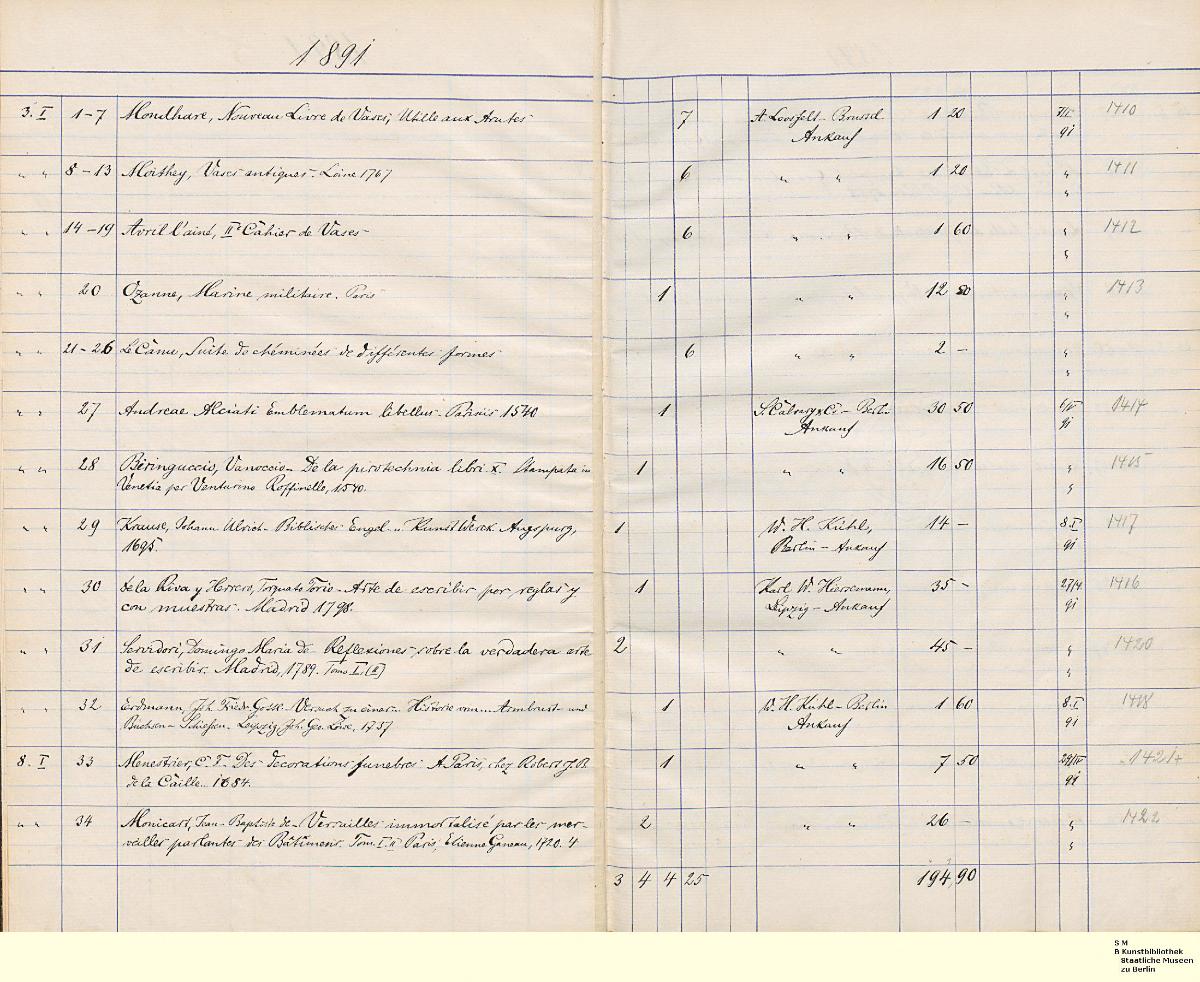 1891
3. I 1-7 Mondhare, Nouveau Livre de Vases, Utille aux Arutes 7 A. Loosfelt - Brussel 1 20 1410
Ankauf 91
" " 8-13 Moithey, Vases antiques. Loine 1767 6 " " 1 20 " 1411
"
" " 14-19 Avril l'ainé, IIe Cahier de Vases 6 " " 1 60 " 1412
"
" " 20 Ozanne, Marine militaire. Paris 1 " " 12 50 " 1413
"
" " 21-26 Le Canu, Suite de chéminées de différentes formes 6 " " 2 - "
"
" " 27 Andreae Alciati Emblematum libellus. Parisiis 1540 1 S. Calvary & Co. - Berlin 30 50 1414
Ankauf 91
" " 28 Biringuccio, Vanoccio - De la pirotechnia libri X. Stampata in 1 " " 16 50 " 1415
Venetia per Venturino Roffinello, 1540. "
" " 29 Krause, Johann Ulrich - Biblisches Engel .. Kunst Werck Augspurg, 1 W. H. Kühl, 14 - 8. I 1417
1695. Berlin - Ankauf 91
" " 30 de la Riva y Herrero, Torquato Torio - Arte de escribir por reglas y 1 Karl W. Hiersemann, 35 - 27/4. 1416
con muestras. Madrid 1798. Leipzig - Ankauf 91
" " 31 Servidori, Domingo Maria de - Reflexiones sobre la verdadera arte 2 " " 45 - " 1420
de escribir. Madrid, 1789. Tomo I. (II) "
" " 32 Erdmann, Joh. Friedr. Gottl. - Versuch zu einer .. Historie vom .. Armbrust- und 1 W. H. Kühl - Berlin 1 60 8. I 1418
Büchsen-Schießen. Leipzig, Joh. Geo. Löwe, 1737 Ankauf 91
8. I 33 Menestrier, C. F. - Des decorations funebres. A Paris, chez Robert J. B. 1 " " 7 50 29/IV 1421
de la Caille .. 1684. 91
" " 34 Monicart, Jean-Baptiste de - Versailles immortalisé par les mer- 2 " " 26 - " 1422
veilles parlantes des Bâtimens. Tom. I. II Paris, Etienne Ganeau, 1720. 4 "
3 4 4 25 194,90
S M
B Kunstbibliothek
Staatliche Museen
zu Berlin